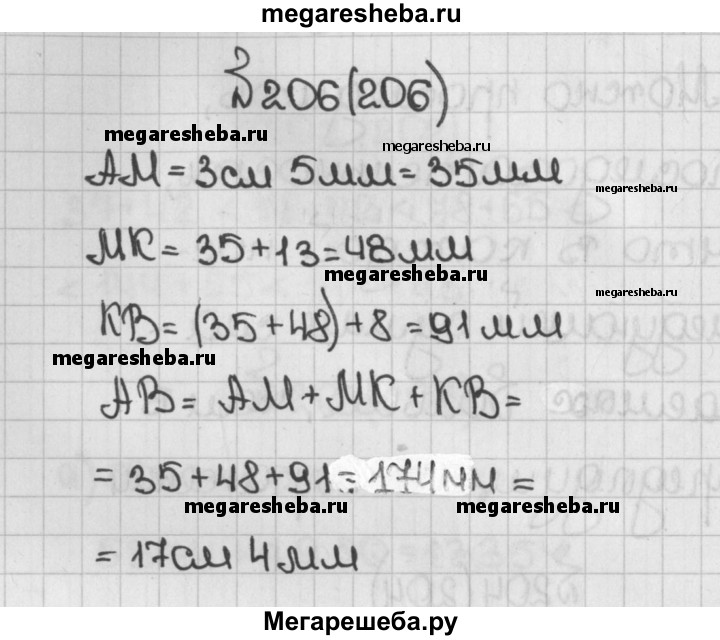 megaresheba.ru
№206(206)
megaresheba.ru
megaresheba.ru
АМ = 3см 5мм = 35мм
megaresheba.ru
МК = 35+13=48мм
megaresheba.ru
megaresheba.ru
КВ = (35+48)+8 =91мм
megaresheba.ru
АВ = АМ+МК+КВ=
= 35+48+91 = 174мм =
megaresheba.ru megaresheba.ru
= 17см 4мм
Мегарешеба.ру